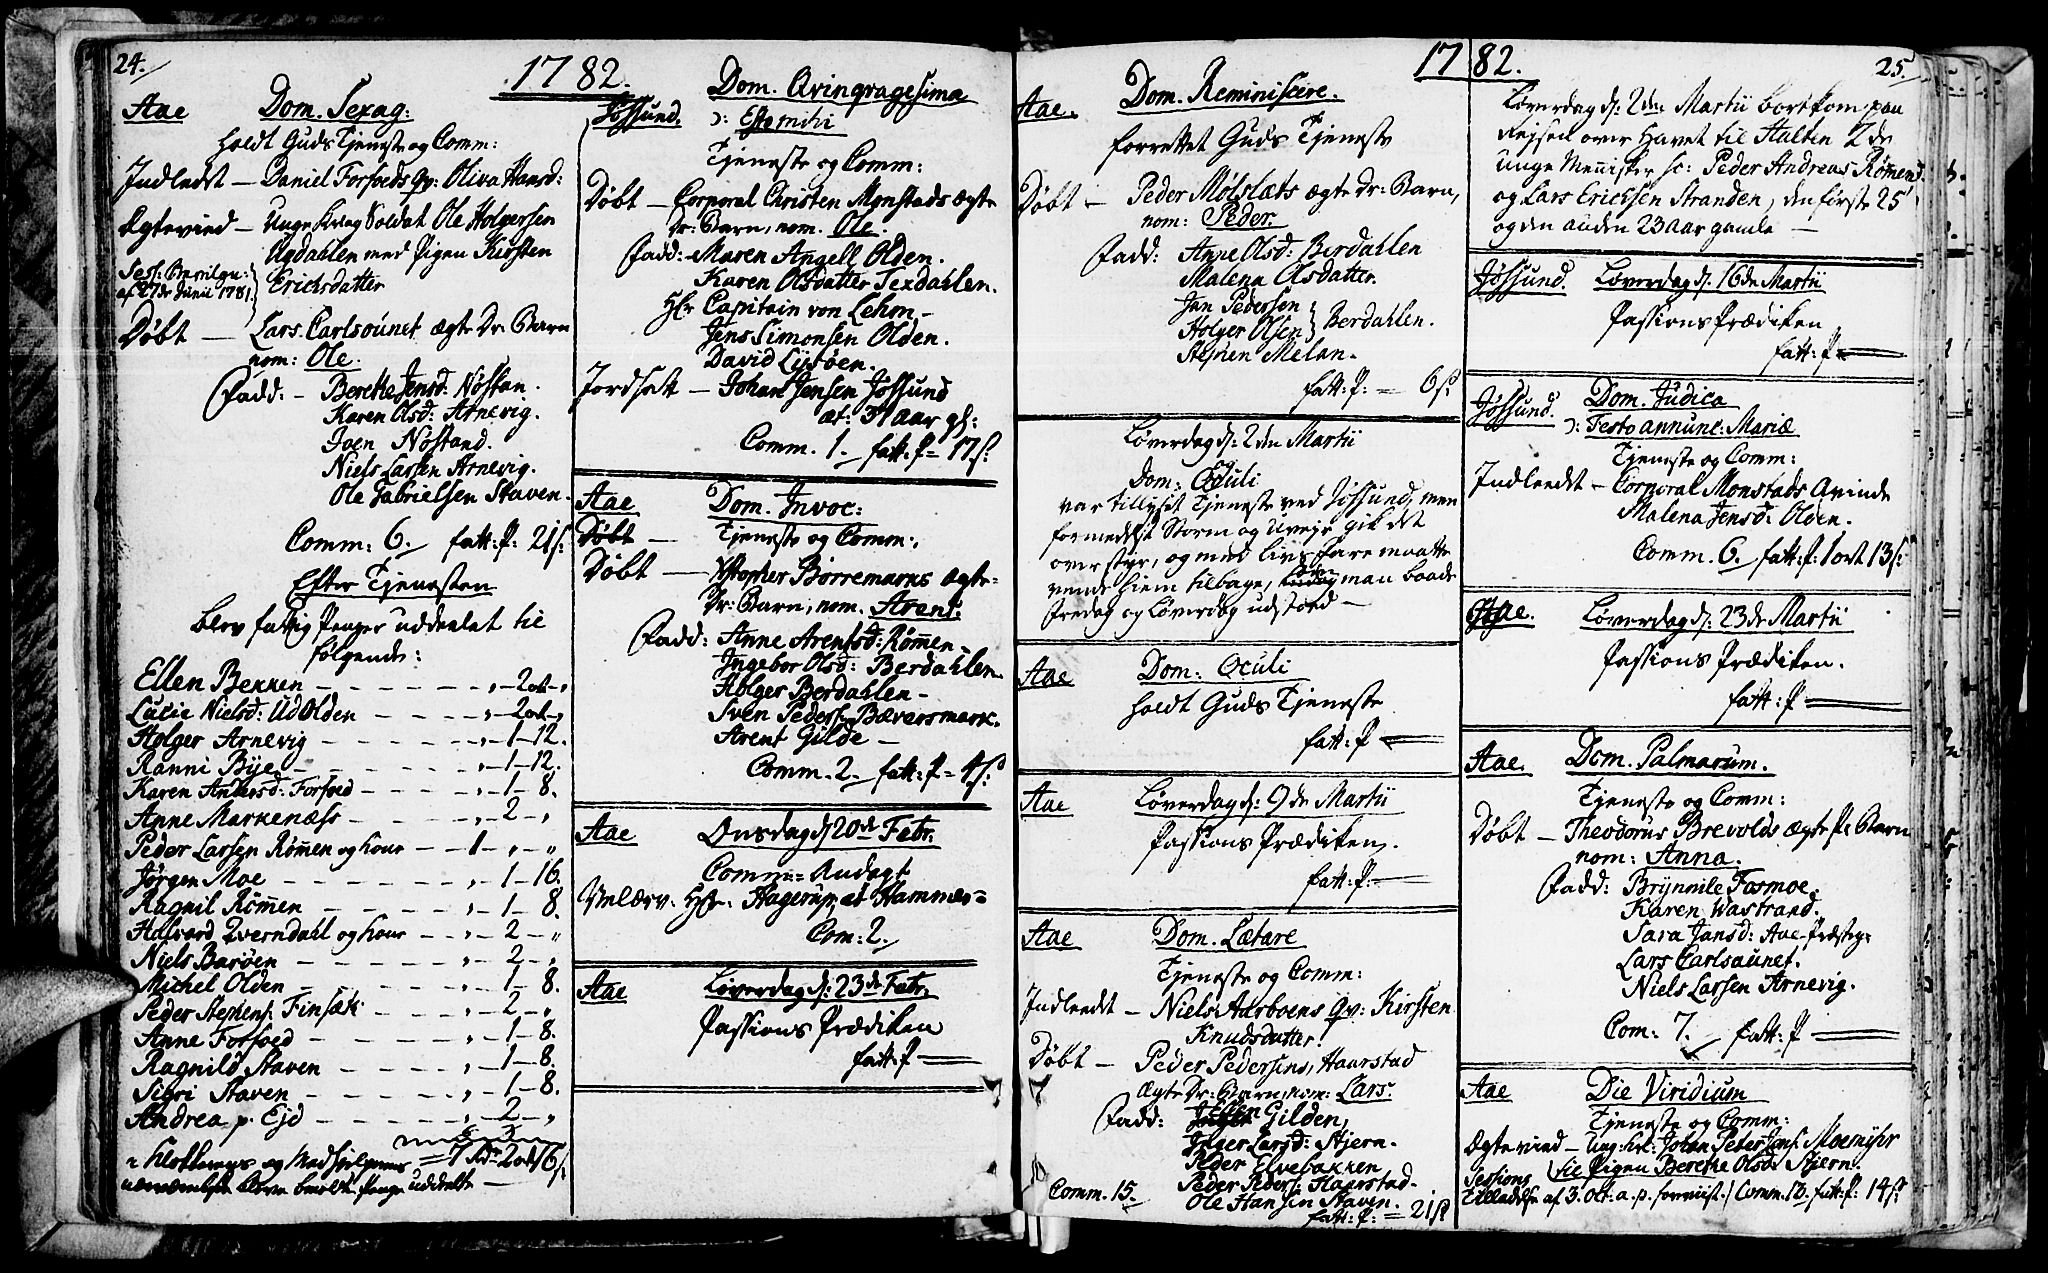 24.
1782.
Aae Dom. Sexag:
holdt Guds Tjeneste og Comm:
Indledt — Daniel Forfoeds Qv: Oliva Hansd:
Ægtevied — Unge Karl Soldat Ole Holgersen
Ugdahlen med Pigen Kirsten
Erichsdatter
af 27de Junii 1781.
Døbt — Lars Carlsøunet ægte Dr: Barn
nom: Ole.
Fadd: — Berethe Jensd: Nøstan.
Karen Olsd: Arnevig.
Joen Nøstand.
Niels Larsen Arnevig.
Ole Gabrielsen Staven.
Comm: 6. fatt: P: 21 s:
Efter Tjenesten
blev fattig Penger uddeelet til
følgende:
Ellen Bekken — „ — 2 ort — „
Lucie Nielsd: Ud Olden — „ — 2 ort — „
Holger Arnevig — „ — 1 — 12.
Ranni Bye — „ — 1 — 12.
Karen Andersd: Forfoed — „ — 1 — 8.
Anne Markenæss — „ — 2 — „
Peder Larsen Rømen og Kone — 1 — „ — „
Jørgen Moe — „ — 1 — 16.
Ragnil Rømen — „ — 1 — 8.
Halvord Qverndahl og Kone — „ — 2 — „
Niels Barøen — „ — 2 — „
Michel Olden — „ — 1 — 8.
Peder Stephens: Finsæt — „ — 2 — „
Anne Forfoed — „ — 1 — 8.
Ragnild Staven — „ — 1 — 8.
Sigri Staven — „ — 1 — 8.
Andrea p. Ejd — „ — 2 — „
Klokkerens og Medhielpernes
uddelte —
Jøssund. Dom. Qvinqvagesima
ɔ: Esto mihi
Tjeneste og Comm:
Døbt — Corporal Christen Monstads ægte
Dr: Barn, nom. Ole.
Fadd: Maren Angell Olden.
Karen Olsdatter Texdahlen.
Hr Capitain von Lehm —
Jens Simonsen Olden.
David Lysøen.
Jordsatt — Johan Jensen Jøssund
at: 31 aar gl:
Comm. 1. fatt: P = 17 s:
Aae Dom. Invoc:
Døbt — Tjeneste og Comm:
Døbt — Xstopher Børremarks ægte
Dr: Barn, nom. Arent.
Fadd: Anne Arentsd: Rømen —
Ingebor Olsd: Berdahlen.
Holger Berdahlen —
Sven Peders: Bæversmark.
Arent Gilde —
Comm. 2. fatt: P = 4 s:
Aae Onsdag d: 20de Febr.
Comm: Andagt
Hr: Hagerup, at Hammer =
Com: 2.
Aae Løverdag d: 23de Febr.
Passions Prædiken
fatt: P —
1782.
25.
Aae. Dom. Reminiscere.
forrettet Guds Tjeneste
Døbt — Peder Mølslæts ægte Dr: Barn,
nom: Peder.
Fadd: Anne Olsd: Berdahlen
Malena Olsdatter.
Jan Pedersen
Holger Olsen } Berdahlen.
Stephen Melan.
fatt: P: = 6 s:
Løverdag d: 2den Martii
og
Dom: Oculi
var tillyst Tjeneste ved Jøssund, men
formedelst Storm og Uveyr gik det
over styr, og med Livs fare maatte
vende hiem tilbage, man baade
Fredag og Løverdag udstoed —
Aae Dom: Oculi
holdt Guds Tjeneste
fatt: P —
Aae Løverdag d: 9de Martii
Passions Prædiken.
fatt: P: —
Aae Dom. Lætare
Tjeneste og Comm:
Indleedt — Niels Aarboens Qv: Kirsten
Knudsdatter.
Døbt — Peder Pedersens, Haarstad
ægte Dr: Barn, nom: Lars.
Fadd: Gilden,
Inger Larsd: Stjern.
Peder Elvebakken
Peder Peders: Haarstad.
Comm. 15. Ole Hansen Staven.
fatt: P: = 21 s:
Løverdag d: 2den Martii bortkom paa
Rejsen over Havet til Halten 2de
unge Mennisker sc: Peder Andreas Rømen
og Lars Erichsen Stranden, den første 25
og den anden 23 aar gamle —
Jøssund. Løverdag d: 16de Martii
Passions Prædiken
fatt: P —
Jøssund. Dom. Judica
ɔ: Festo annunc: Mariæ
Tjeneste og Comm:
Indleedt — Corporal Monstads Qvinde
Malena Jensd: Olden.
Comm. 6. fatt: P: 1 ort 13 s:
Aae. Løverdag d: 23de Martii
Passions Prædiken.
fatt: P —
Aae. Dom. Palmarum.
Tjeneste og Comm:
Døbt — Theodorus Brevolds ægte Pe Barn
nom: Anna.
Fadd: Brynnile Fosmoe.
Karen Wastrand.
Sara Jansd: Aae Præsteg:
Lars Carlsøunet.
Niels Larsen Arnevig.
Com: 7. fatt: P —
Aae Die Viridium
Tjeneste og Comm:
Ægteviedt — Ung: Kl: Johan Peter Jans: Moemyhr
til Pigen Berethe Olsd: Stjern.
Sessions
Tilladelse af 3. Oct. a. p. forevist. / Comm. 16. fatt: P: 14 s: